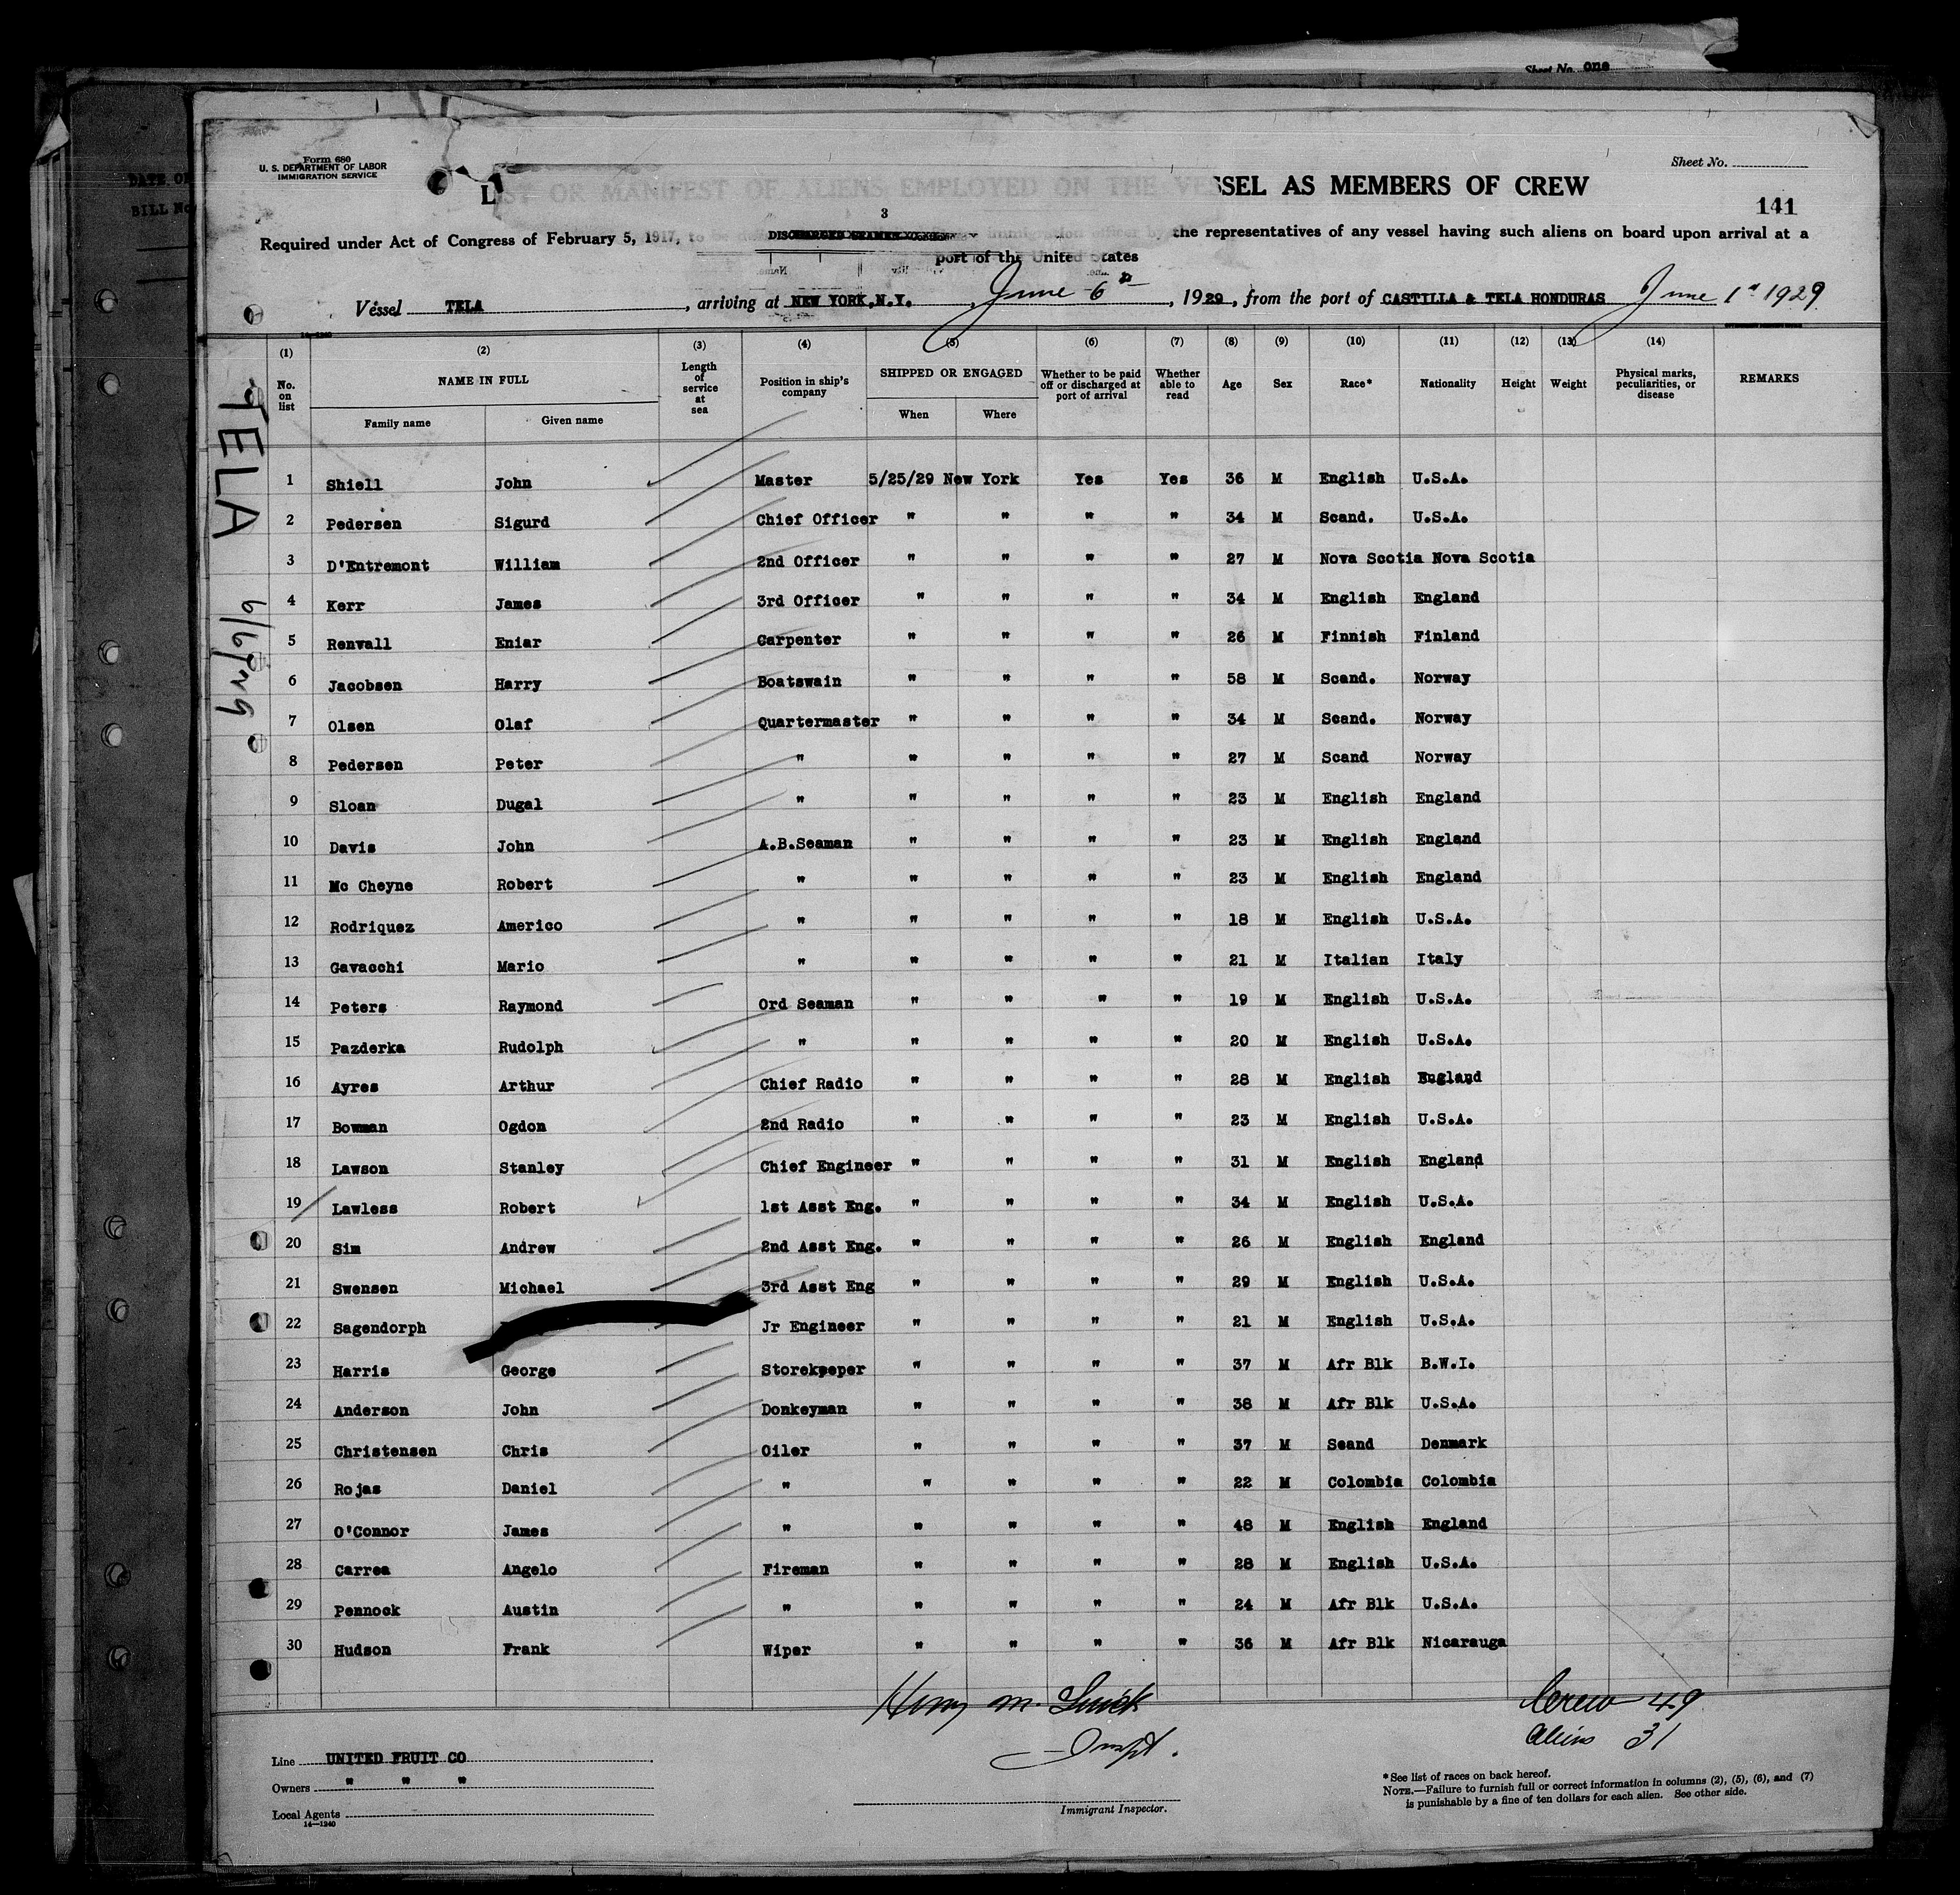 Sheet No. one
Form 680
U. S. DEPARTMENT OF LABOR
IMMIGRATION SERVICE
DATE OF
BILL No
Sheet No.
LIST OR MANIFEST OF ALIENS EMPLOYED ON THE VESSEL AS MEMBERS OF CREW
141
3
Required under Act of Congress of February 5, 1917, to be immigration officer by the representatives of any vessel having such aliens on board upon arrival at a
port of the United States
Vessel TELA, arriving at NEW YORK,N.Y. June 6th, 1929, from the port of CASTILLA & TELA HONDURAS June 1st 1929
14—1240
TELA 6/6/29
(1) (2) (3) (4) (5) (6) (7) (8) (9) (10) (11) (12) (13) (14)
No. on list NAME IN FULL Family name Given name Length of service at sea Position in ship's company SHIPPED OR ENGAGED When Where Whether to be paid off or discharged at port of arrival Whether able to read Age Sex Race* Nationality Height Weight Physical marks, peculiarities, or disease REMARKS
1 Shiell John Master 5/25/29 New York Yes Yes 36 M English U.S.A.
2 Pedersen Sigurd Chief Officer " " " " 34 M Scand. U.S.A.
3 D'Entremont William 2nd Officer " " " " 27 M Nova Scotia Nova Scotia
4 Kerr James 3rd Officer " " " " 34 M English England
5 Renvall Eniar Carpenter " " " " 26 M Finnish Finland
6 Jacobsen Harry Boatswain " " " " 58 M Scand. Norway
7 Olsen Olaf Quartermaster " " " " 34 M Scand. Norway
8 Pedersen Peter " " " " " 27 M Scand Norway
9 Sloan Dugal " " " " " 23 M English England
10 Davis John A.B.Seaman " " " " 23 M English England
11 Mc Cheyne Robert " " " " " 23 M English England
12 Rodriquez Americo " " " " " 18 M English U.S.A.
13 Gavacchi Mario " " " " " 21 M Italian Italy
14 Peters Raymond Ord Seaman " " " " 19 M English U.S.A.
15 Pazderka Rudolph " " " " " 20 M English U.S.A.
16 Ayres Arthur Chief Radio " " " " 28 M English England
17 Bowman Ogdon 2nd Radio " " " " 23 M English U.S.A.
18 Lawson Stanley Chief Engineer " " " " 31 M English England
19 Lawless Robert 1st Asst Eng. " " " " 34 M English U.S.A.
20 Sim Andrew 2nd Asst Eng. " " " " 26 M English England
21 Swensen Michael 3rd Asst Eng " " " " 29 M English U.S.A.
22 Sagendorph Jr Engineer " " " " 21 M English U.S.A.
23 Harris George Storekeeper " " " " 37 M Afr Blk B.W.I.
24 Anderson John Donkeyman " " " " 38 M Afr Blk U.S.A.
25 Christensen Chris Oiler " " " " 37 M Scand Denmark
26 Rojas Daniel " " " " " 22 M Colombia Colombia
27 O'Connor James " " " " " 48 M English England
28 Carrea Angelo Fireman " " " " 28 M English U.S.A.
29 Pennock Austin " " " " " 24 M Afr Blk U.S.A.
30 Hudson Frank Wiper " " " " 36 M Afr Blk Nicarauga
Crew 49
Aliens 31
Inspt.
Line UNITED FRUIT CO
Owners " " "
Local Agents
14—1240
Immigrant Inspector.
*See list of races on back hereof.
NOTE.—Failure to furnish full or correct information in columns (2), (5), (6), and (7)
is punishable by a fine of ten dollars for each alien. See other side.